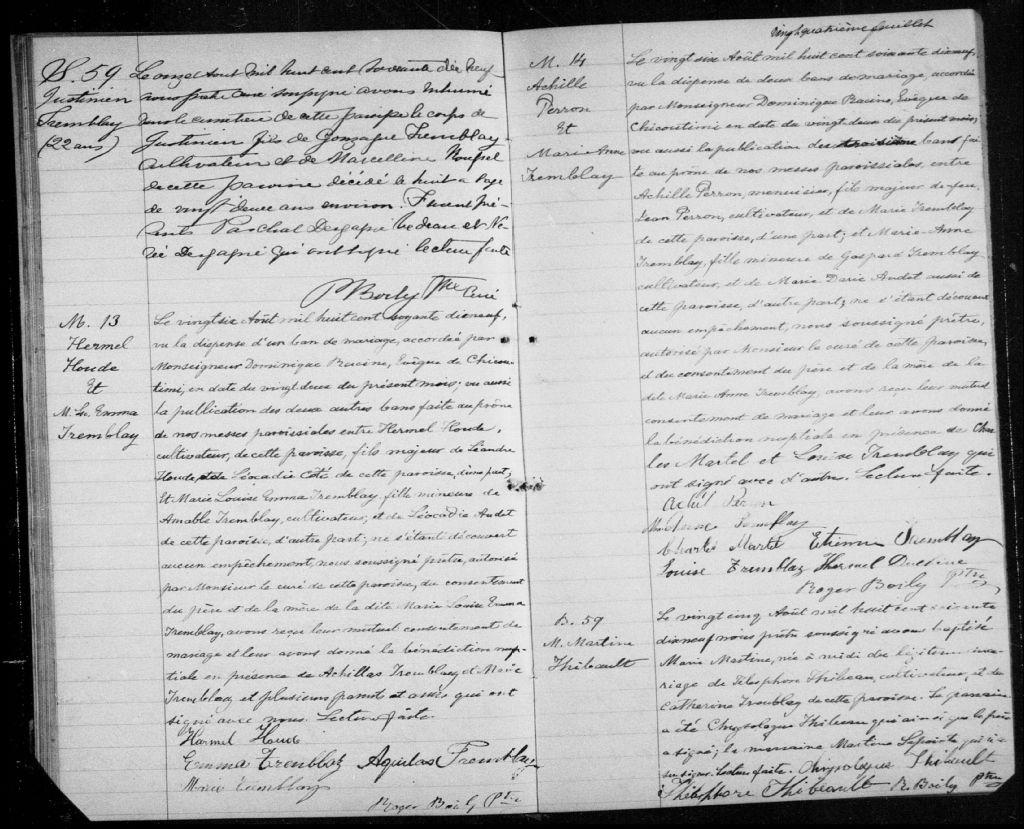 S. 59
Justinien
Tremblay
(22 ans)
Le onze Aout mil huit cent soixante dix neuf
nous pretre curé soussigné avons inhumé
dans le cimetière de cette paroisse le corps de
Justinien fils de Gonzague Tremblay
cultivateur et de Marcelline
de cette paroisse décédé le huit a l'age
de vingt deux ans environ. Furent pré-
sents Paschal Degagné bedeau et No-
Degagné qui ont signé lecture faite
Boily Ptre Curé
M. 13
Hermel
Houde
Et
M. Ls. Emma
Tremblay
Le vingt six Août mil huit cent soixante dixneuf,
vu la dispense d'un ban de mariage, accordée par
Monseigneur Dominique Racine, Evêque de Chicou-
timi, en date du vingt deux du présent mois; vu aussi
la publication des deux autres bans faite au prône
de nos messes paroissiales entre Hermel Houde,
cultivateur, de cette paroisse, fils majeur de Léandre
Houde, et de Léocadie Coté de cette paroisse, d'une part,
Et Marie Louise Emma Tremblay, fille mineure de
Amable Tremblay, cultivateur, et de Léocadie Audet
de cette paroisse, d'autre part; ne s'étant découvert
aucun empêchement, nous soussigné prêtre, autorisé
par Monsieur le curé de cette paroisse, du consentement
du père et de la mère de la dite Marie Louise Emma
Tremblay, avons reçu leur mutuel consentement de
mariage et leur avons donné la bénédiction nup-
tiale en présence de Achillas Tremblay, et Marie
Tremblay et plusieurs parents et amis qui ont
signé avec nous. Lecture faite.
Harmel Houd
Emma Tremblay Aquilas Tremblay
Marie Tremblay
Roger Boily Ptre
vingt quatrième feuillet
M. 14
Achille
Perron
Et
Marie Anne
Tremblay
Le vingt six Août mil huit cent soixante dixneuf,
vu la dispense de deux bans de mariage, accordée
par Monseigneur Dominique Racine, Evêque de
Chicoutimi en date du vingt deux du présent mois;
vu aussi la publication des troisième bans fai-
te au prône de nos messes paroissiales, entre
Achille Perron, menuisier, fils majeur de feu
Jean Perron, cultivateur, et de Marie Tremblay
de cette paroisse, d'une part; et Marie-Anne
Tremblay, fille mineure de Gaspard Tremblay
cultivateur, et de Marie Darie Audet aussi de
cette paroisse, d'autre part; ne s'étant découvert
aucun empêchement, nous soussigné prêtre,
autorisé par Monsieur le curé de cette paroisse,
et du consentement du père et de la mère de la
dite Marie Anne Tremblay, avons reçu leur mutuel
consentement de mariage et leur avons donné
la bénédiction nuptiale en présence de Char
les Martel et Louise Tremblay qui
ont signé avec d'autres. Lecture faite.
Achil Perron
Tremblay
Charles Martel Etienne Tremblay
Louise Tremblay Thermel
Roger Boily ptre
B. 59
M. Martine
Thibeault
Le vingt cinq Août mil huit cent soixante
dixneuf nous prêtre soussigné avons baptisé
Marie Martine, née à midi du légitime ma-
riage de Télesphore Thibeau, cultivateur, et de
Catherine Tremblay de cette paroisse. Le parrain
a été Chrysologue Thibeau qui ainsi que le père
a signé; la marraine Martine Lapointe qui n'a
su signer. Lecture faite. Chrysologue Thibeault
Thelesphore Thibeault R. Boily Ptre